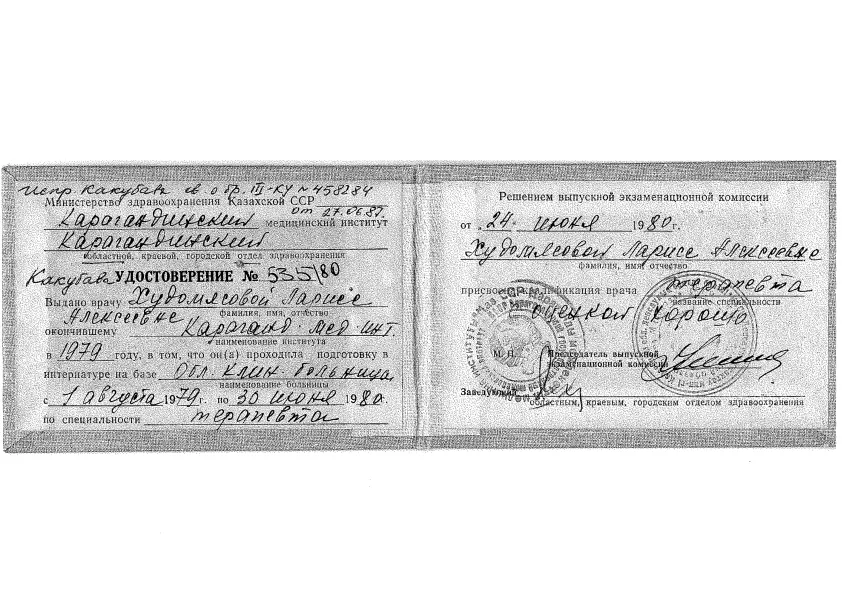 испр Какубава св о бр. III-КУ № 458284
от 27.06.87.
Министерство здравоохранения Казахской ССР
Карагандинский медицинский институт
Карагандинский
областной, краевой, городской отдел здравоохранения
Какубава УДОСТОВЕРЕНИЕ № 535/80
Выдано врачу Худомясовой Ларисе
фамилия, имя, отчество
Алексеевне
окончившему Караганд. мед. инт.
наименование института
в 1979 году, в том, что он(а) проходила подготовку в
интернатуре на базе Обл. клин. больница
наименование больницы
с 1 августа 1979 г. по 30 июня 1980.
по специальности терапевта
Решением выпускной экзаменационной комиссии
от „24 июня 1980 г.
Худомясовой Ларисе Алексеевне
фамилия, имя, отчество
присвоена квалификация врача терапевта
название специальности
оценкой хорошо
М. П. Председатель выпускной
экзаменационной комиссии
Заведующий
областным, краевым, городским отделом здравоохранения